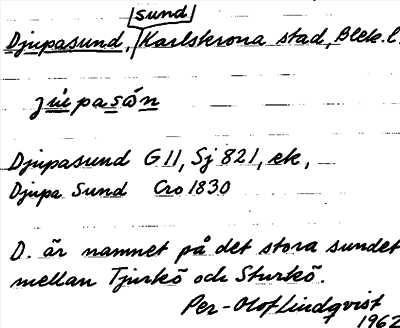 sund
Djupasund, Karlskrona stad, Blek. l.
júpasán
Djupasund G11, Sj 821, ek,
Djupa Sund Cro 1830
D. är namnet på det stora sundet
mellan Tjurkö och Sturkö.
Per-Olof Lindqvist
1962